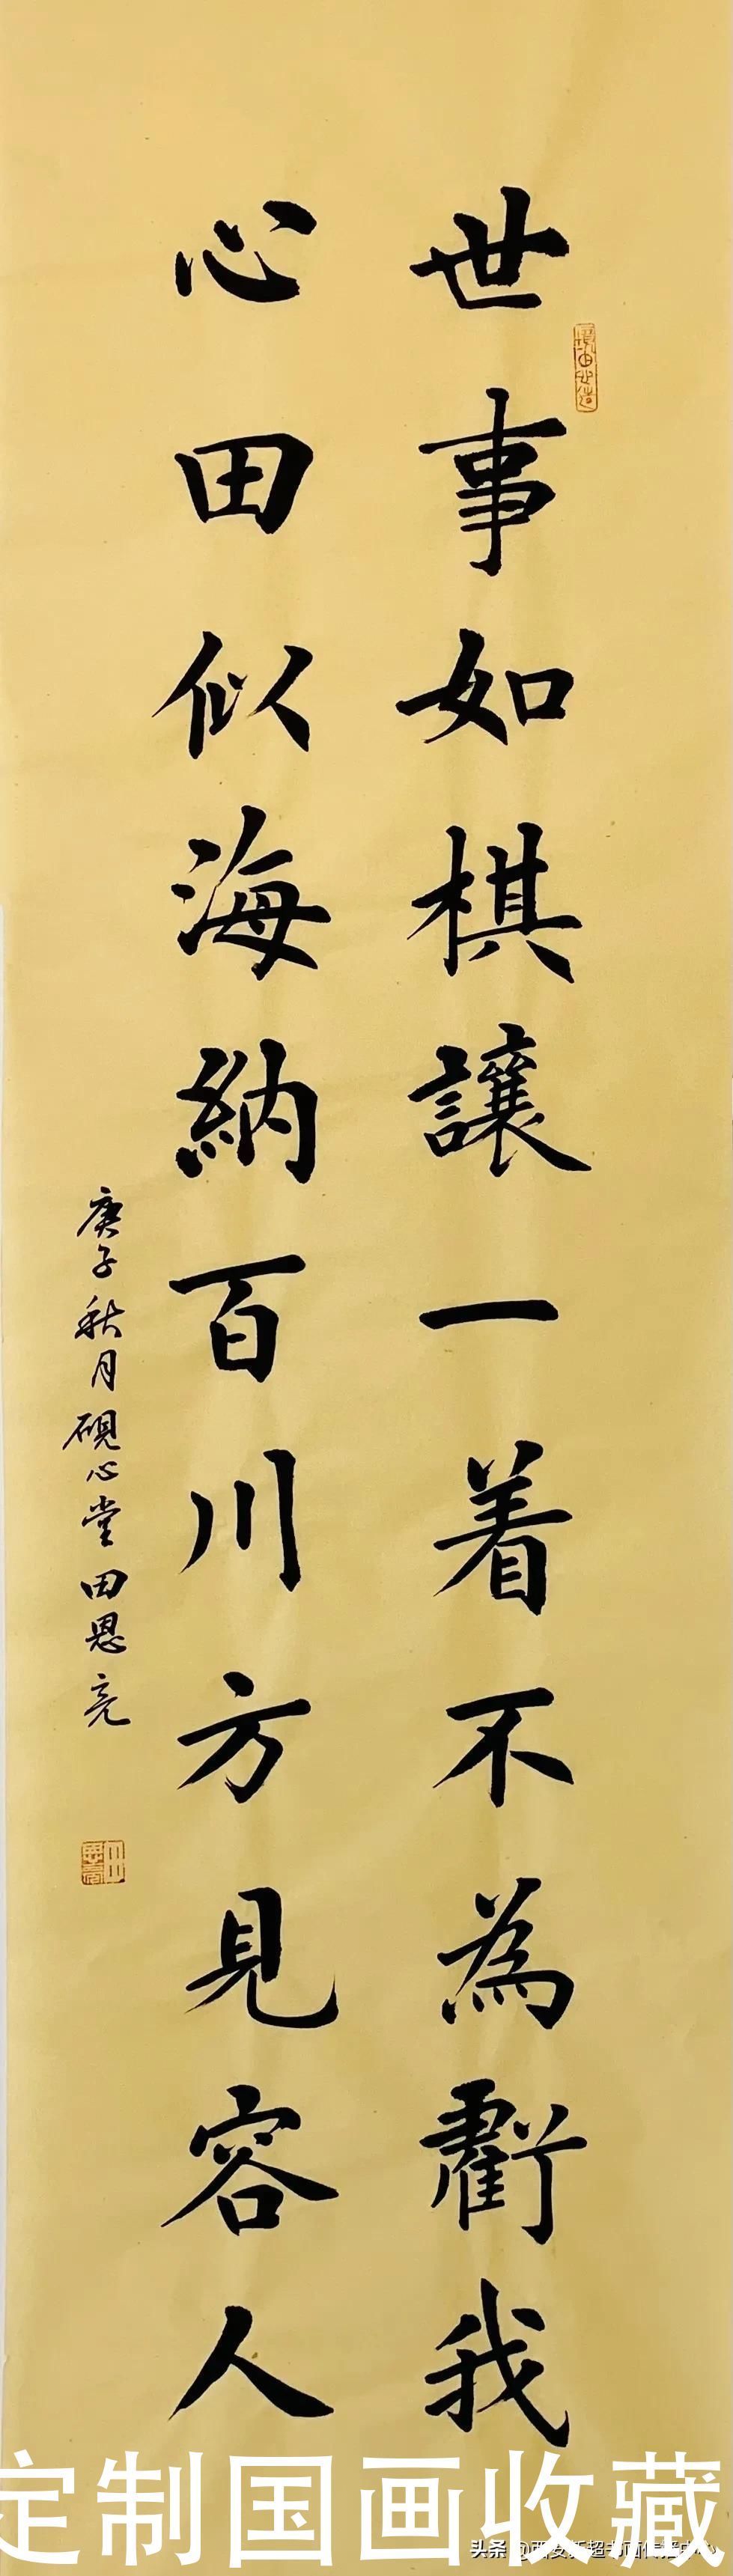 世事如棋讓一着不為虧我
心田似海納百川方見容人
庚子秋月硯心堂田恩亮
定制国画收藏